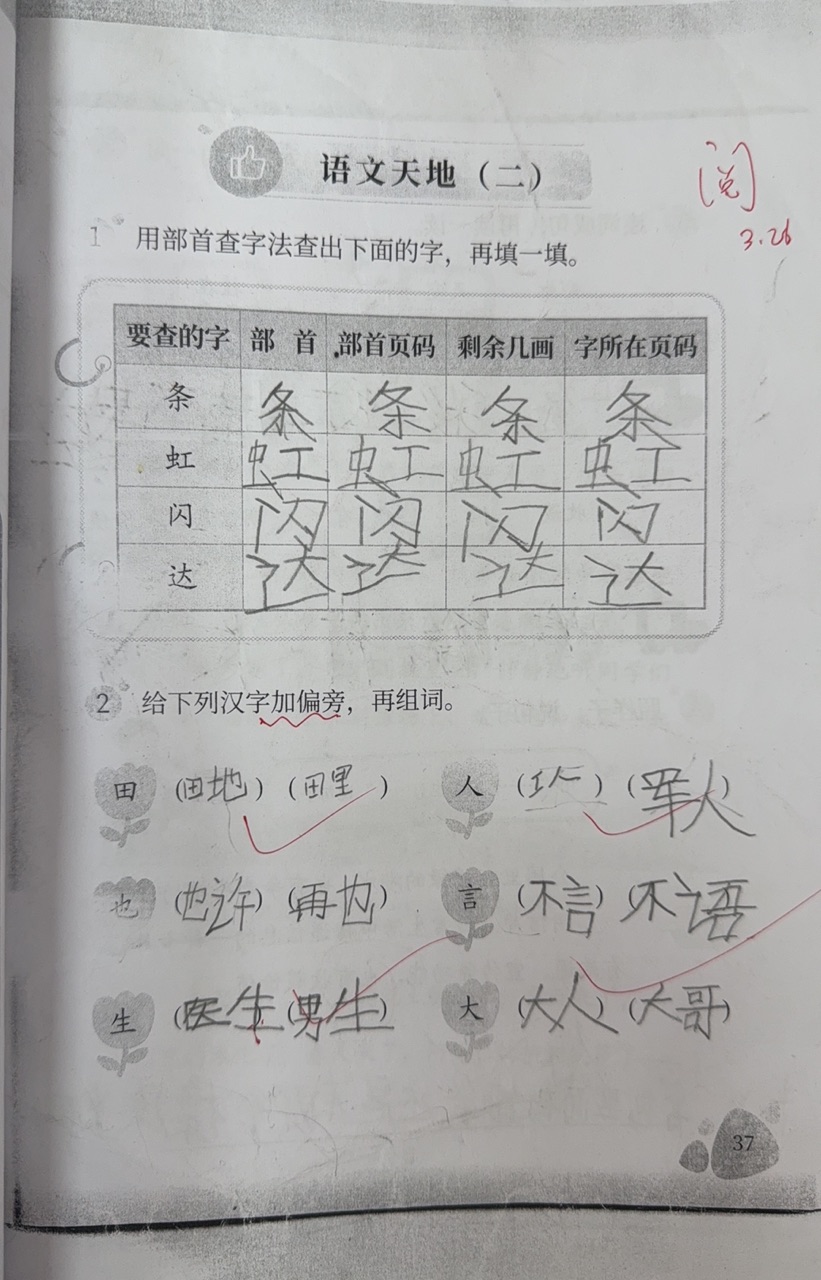 语文天地（二）
阅
3.26
1 用部首查字法查出下面的字，再填一填。
要查的字 部首 部首页码 剩余几画 字所在页码
条 条 条 条 条
虹 虹 虹 虹 虹
闪 闪 闪 闪 闪
达 达 达 达 达
2 给下列汉字加偏旁，再组词。
田 （田地）（田里） 人 （工人）（军人）
也 （也许）（再也） 言 （不言）（不语）
生 （医生）（男生） 大 （大人）（大哥）
37